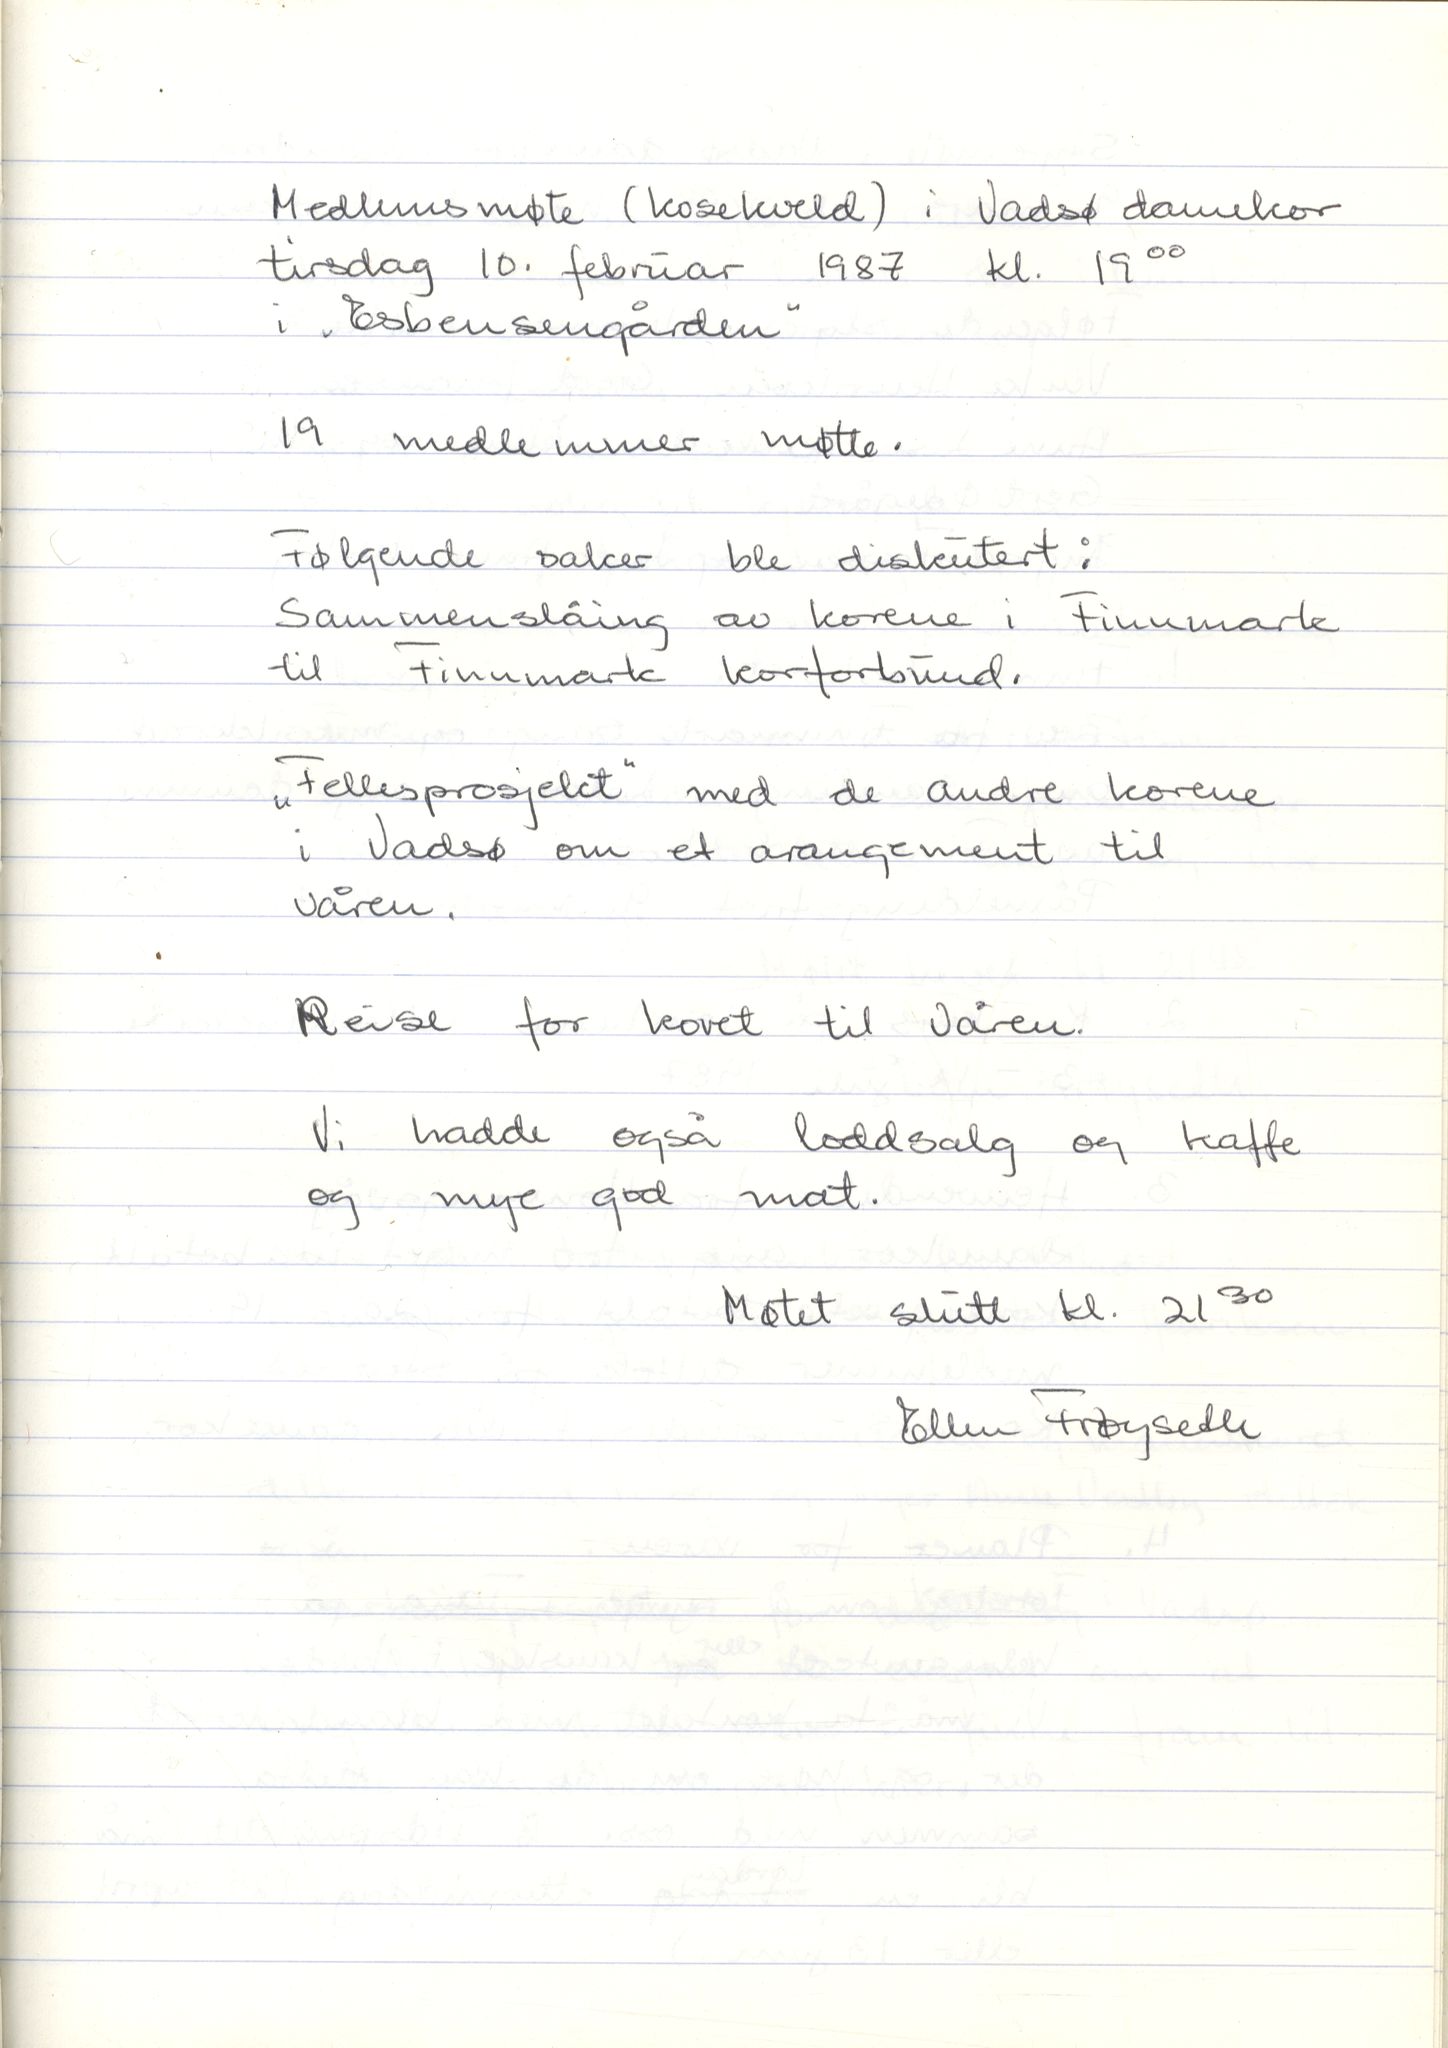 Medlemsmøte (kosekveld) i Vadsø damekor
tirsdag 10. februar 1987 kl. 19⁰⁰
i „Esbensengården"
19 medlemmer møtte.
Følgende saker ble diskutert:
Sammenslåing av korene i Finnmark
til Finnmark korforbund.
„Fellesprosjekt" med de andre korene
i Vadsø om et arangement til
våren.
Reise for koret til våren.
Vi hadde også loddsalg og kaffe
og mye god mat.
Møtet slutt kl. 21³⁰
Ellen Frøyseth